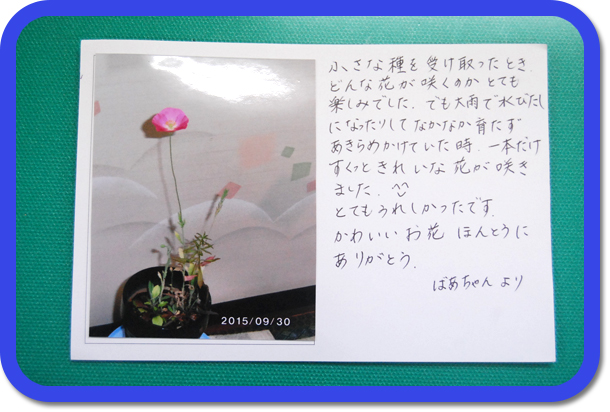 小さな種を受け取ったとき、
どんな花が咲くのかとても
楽しみでした。でも大雨で水びたし
になったりしてなかなか育たず
あきらめかけていた時、一本だけ
すくっときれいな花が咲き
ました。
とてもうれしかったです。
かわいいお花 ほんとうに
ありがとう。
ばあちゃん より
2015/09/30